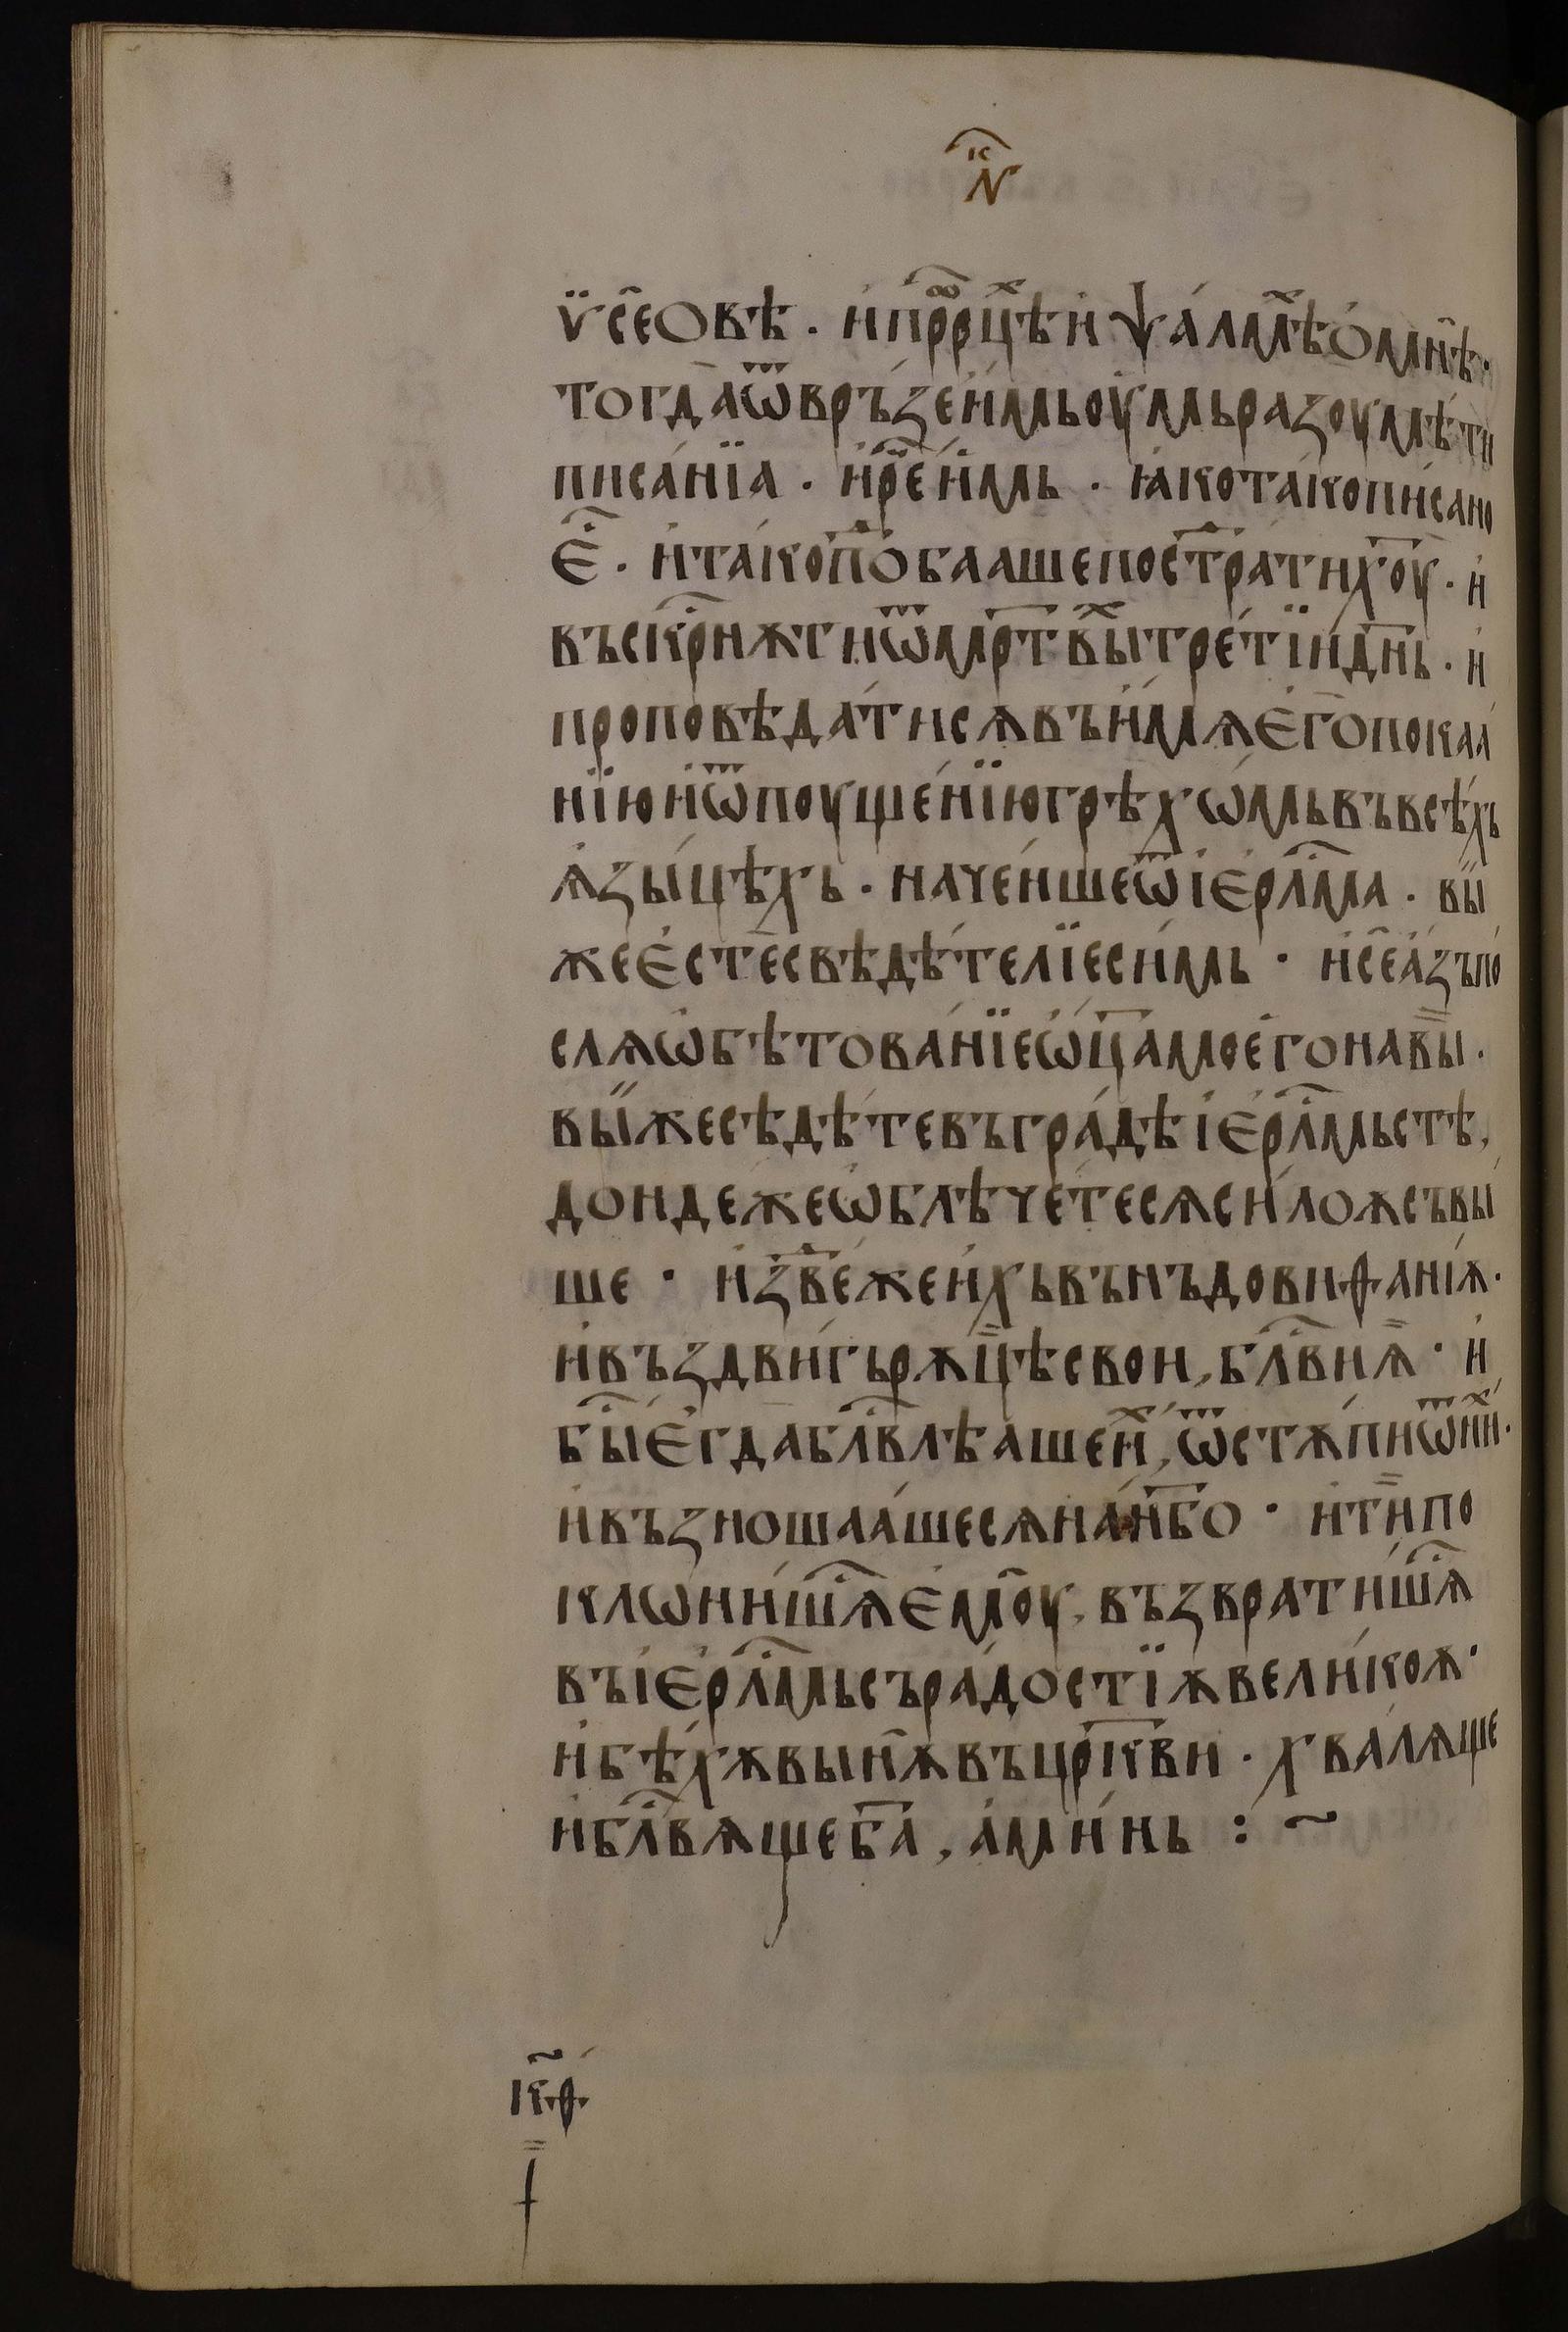 ꙵс
N
ѵ̈сеовѣ · и҆ прⷪ҇рцⷯѣ и҆ ѱа́лмⷯѣ о҆ мнѣ ·
тогда̀ ѿвръзе и҆мь оу҆мь разоумѣти
писа́нїа · и҆ рⷱ҇е и҆мь · ꙗ҆ко та́ко пи́сано
єⷭ҇ · и҆ та́ко поⷣбааше пострⷣати хоу҃ · и҆
въскрⷭ҇нѫти ѿ мрт҃выⷯ трети́и дн҃ь · и҆
проповѣда́тисѧ въ и҆мѧ є҆го̀ покаа́
нїю и҆ ѿпоуще́нїю грѣхѡ́мь въ всѣ́хь
ѧ҆зы́цѣхь · наче́нше ѿ і҆єрⷭ҇лма · вы̋
же є҆стѐ свѣдѣ́телїе си́мь · и҆ се а҆́зь по
слѧ ѡ҆бѣтова́нїе ѡ҆ц҃а моего̀ на вы̏ ·
вы̋ же сѣдѣ́те въ гра́дѣ і҆єрⷭ҇лмьстѣ,
до́ндеже ѡ҆блѣчете́сѧ си́лоѫ съ вы́
ше · и҆звⷣе́ же и҆́хь вънъ до виѳанїѧ ·
и҆ въздви́гь рѫцѣ̏ свои, блⷭ҇ви ѧ҆̏ · и҆
быⷭ҇ є҆гда блⷭ҇влѣ́аше иⷯ, ѿстѫ́пи ѿ ниⷯ ·
и҆ възноша́ашесѧ на́ нб҃о · и҆ ти̏ по
клѡни́шѧⷭ҇ є҆моу̀, възврати́шѧⷭ҇
въ і҆єрⷭ҇лмь съ ра́достїѫ вели́коѫ ·
и҆ бѣ́хѫ вы́нѫ въ цр҃кви · хва́лѧще
и҆ блⷭ҇вѧще ба҃, а҆ми́нь : ~
кѳ